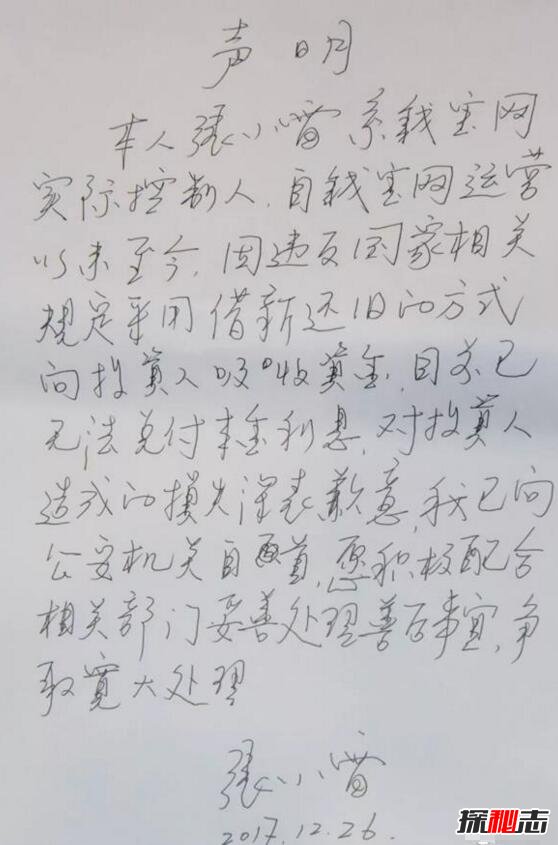 声 明
本人张小雷系钱宝网
实际控制人,自钱宝网运营
以来至今,因违反国家相关
规定采用借新还旧的方式
向投资人吸收资金,目前已
无法兑付本金利息,对投资人
造成的损失深表歉意,我已向
公安机关自首,愿积极配合
相关部门妥善处理善后事宜,争
取宽大处理
张小雷
2017.12.26.
探秘志